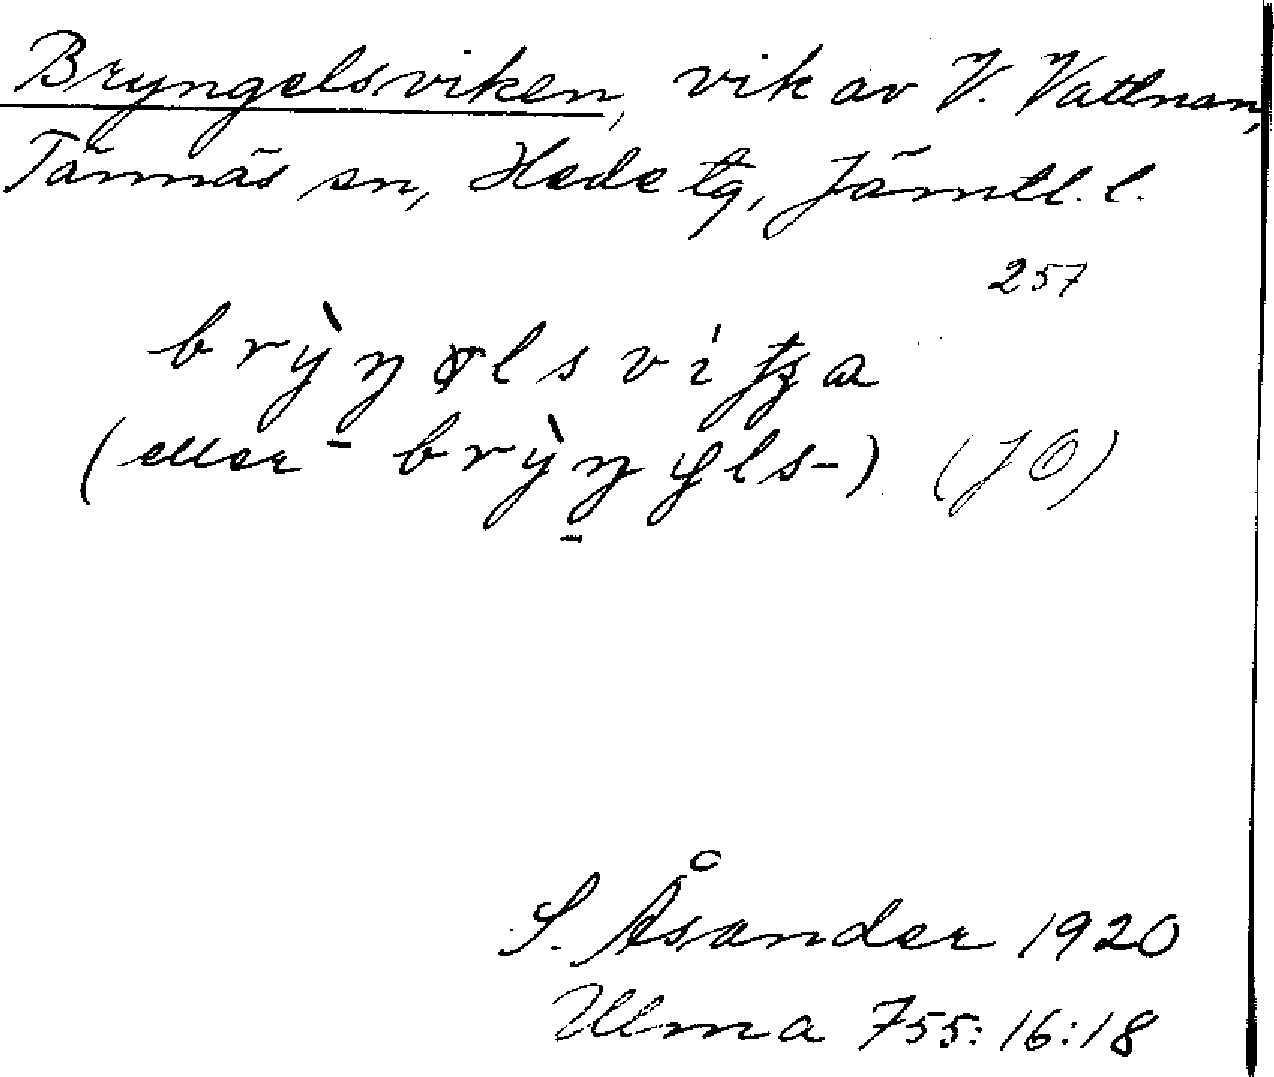 Bryngelsviken, vik av V. Vattnan,
Tännäs sn, Hede tg, Jämtl. l.
257
(eller - (JO)
S. Åsander 1920
Ulma 755:16:18